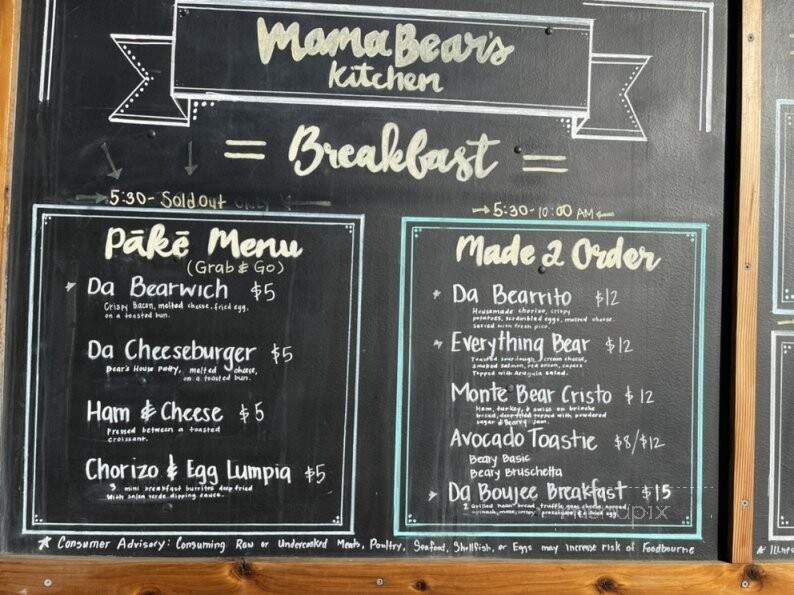 Mama Bear's
Kitchen
= Breakfast =
5:30 - Sold Out
Pākē Menu
(Grab & Go)
* Da Bearwich $5
Crispy bacon, melted cheese, fried egg,
on a toasted bun.
Da Cheeseburger $5
Bear's House Patty, melted cheese,
on a toasted bun.
Ham & Cheese $5
Pressed between a toasted
croissant.
Chorizo & Egg Lumpia $5
3 mini breakfast burritos deep fried
With salsa verde dipping sauce.
5:30 - 10:00 AM
Made 2 Order
* Da Bearrito $12
Housemade chorizo, crispy
potatoes, scrambled eggs, melted cheese.
served with fresh pico.
* Everything Bear $12
Toasted sourdough, cream cheese,
smoked salmon, red onion, capers
Topped with Arugula salad.
Monte Bear Cristo $12
Ham, turkey, & swiss on brioche
bread, deep fried topped with powdered
sugar & Bearry Jam.
Avocado Toastie $8/$12
Beary Basic
Beary Bruschetta
* Da Boujee Breakfast $15
2 Grilled naan bread, truffle goat cheese spread,
egg
* Consumer Advisory: Consuming Raw or Undercooked Meats, Poultry, Seafood, Shellfish, or Eggs may increase risk of Foodbourne